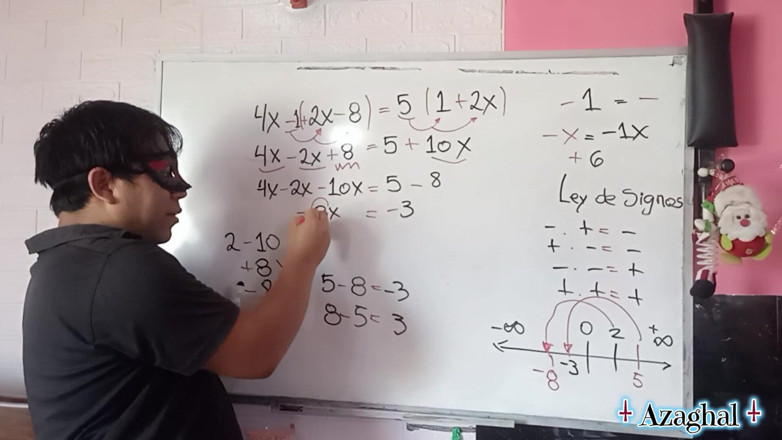 4x-1(+2x-8) = 5 (1+2x)
4x - 2x + 8 = 5 + 10x
4x - 2x - 10x = 5 - 8
- 8x = -3
2-10
+8
-8
5-8=-3
8-5= 3
-1 = -
-x = -1x
+6
Ley de Signos
- · + = -
+ · - = -
- · - = +
+ · + = +
-∞ 0 2 +∞
-8 -3 5
Azaghal